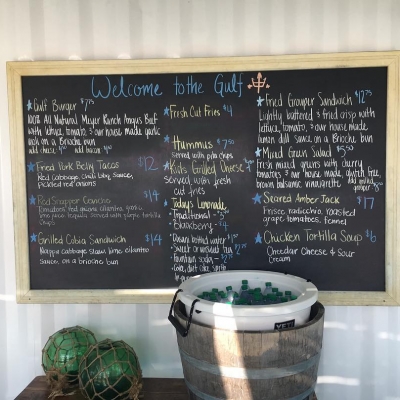 Welcome to the Gulf
Gulf Burger $7.75
100% All Natural Meyer Ranch Angus Beef
with lettuce, tomato, & our house made garlic
on a Brioche bun
add cheese add bacon
Fried Pork Belly Tacos $12
Red Cabbage, Chili Sauce,
Pickled red onions
Red Snapper Ceviche $14
Tomatoes, red onions, cilantro, garlic,
served with purple tortilla
Chips
Grilled Cobia Sandwich $14
Cabbage slaw, lime cilantro
Sauce, on a brioche bun
Fresh Cut Fries $4
Hummus $7.50
Served with pita chips
Kid's Grilled Cheese
Served with fresh
cut fries
Today's Lemonade
Traditional
Blackberry
bottled water
Sweet or unsweet Tea
Fountain Soda
Coke, diet Coke, Sprite
Fried Grouper Sandwich $12
Lightly battered & fried crisp with
lettuce, tomato, & our house made
lemon dill sauce on a Brioche bun
Mixed Green Salad $5.50
Fresh mixed greens with cherry
tomatoes & our house made, gluten free,
brown balsamic vinaigrette
add grilled
grouper
Seared Amber Jack $17
Frisee, radicchio, roasted
grape tomatoes, fennel
Chicken Tortilla Soup $6
Cheddar Cheese & Sour
Cream
YETI